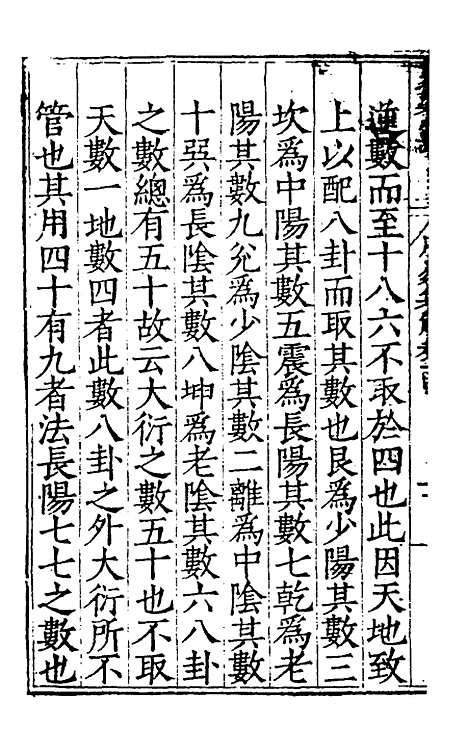 逆數而至十八六不取於四也此因天地致
上以配八卦而取其數也艮爲少陽其數三
坎爲中陽其數五震爲長陽其數七乾爲老
陽其數九兊爲少陰其數二離爲中陰其數
十㢲爲長陰其數八坤爲老陰其數六八卦
之數總有五十故云大衍之數五十也不取
天數一地數四者此數八卦之外大衍所不
管也其用四十有九者法長陽七七之數也